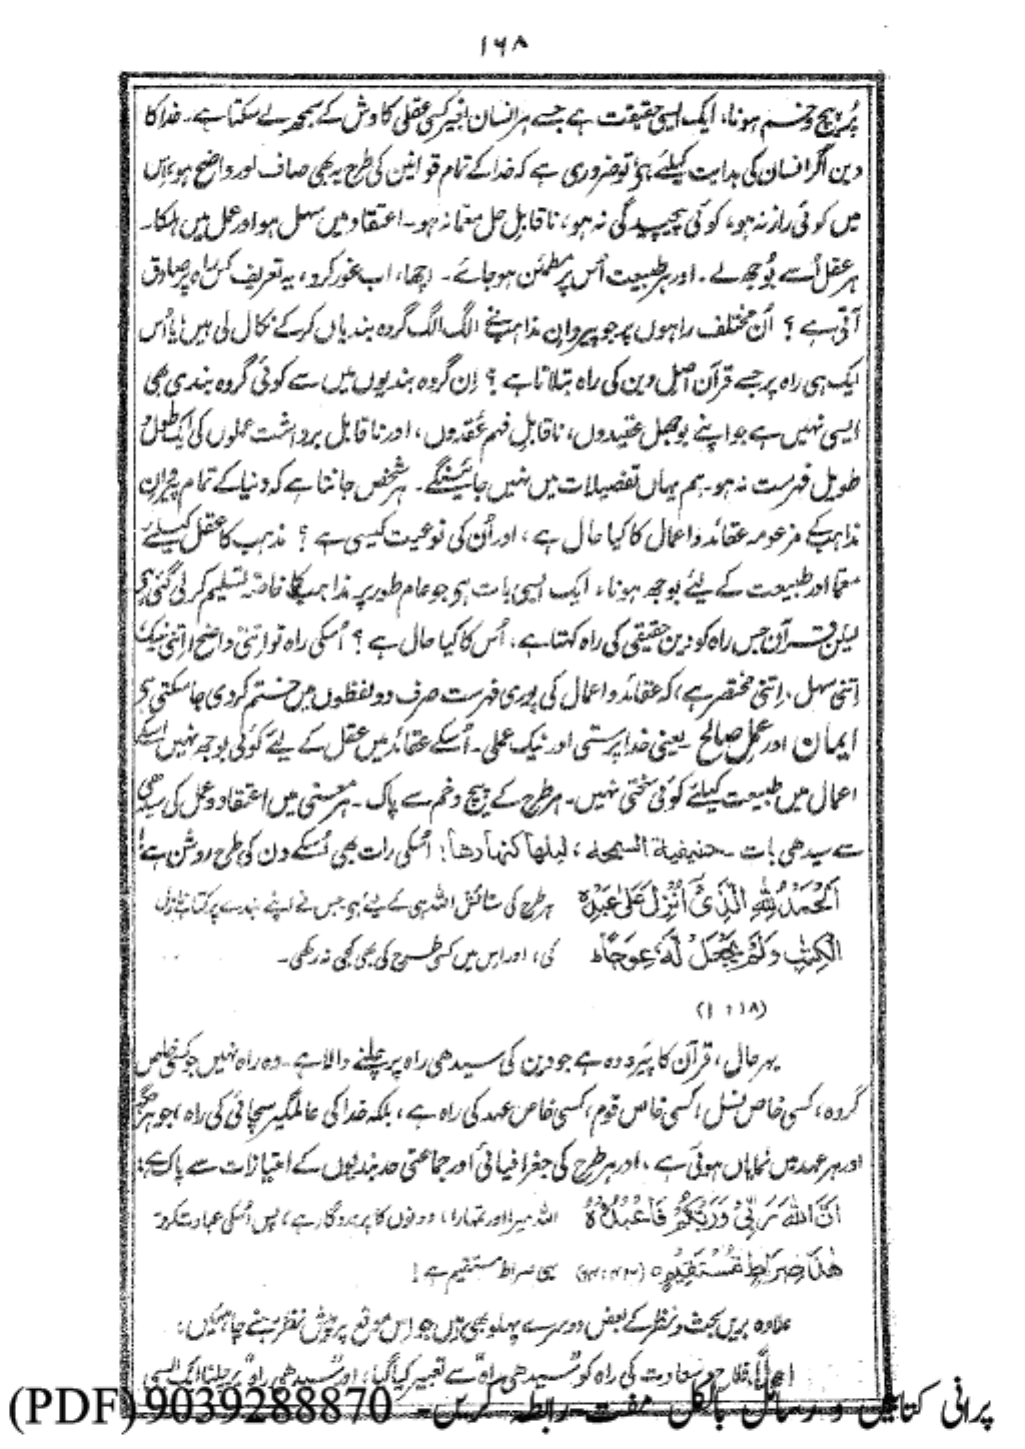 ۱۶۸
پُر پیچ و خم ہونا، ایک ایسی حقیقت ہے جسے ہر انسان بغیر کسی عقلی کاوش کے سمجھ لے سکتا ہے۔ خدا کا
دین اگر انسان کی ہدایت کیلئے ہے، تو ضروری ہے کہ خدا کے تمام قوانین کی طرح یہ بھی صاف اور واضح ہو، اس
میں کوئی راز نہ ہو، کوئی پیچیدگی نہ ہو، ناقابلِ حل معمّا نہ ہو۔ اعتقاد میں سہل ہو اور عمل میں ہلکا۔
ہر عقل اُسے بُوجھ لے۔ اور ہر طبیعت اُس پر مطمئن ہو جائے۔ اچھا، اب غور کرو، یہ تعریف کس راہ پر صادق
آتی ہے؟ اُن مختلف راہوں پر جو پیروانِ مذاہب نے الگ الگ گروہ بندیاں کر کے نکال لی ہیں؛ یا اُس
ایک ہی راہ پر جسے قرآن اصلِ دین کی راہ بتلاتا ہے؟ اِن گروہ بندیوں میں سے کوئی گروہ بندی بھی
ایسی نہیں ہے جو اپنے بوجھل عقیدوں، ناقابلِ فہم عُقدوں، اور ناقابل برداشت عملوں کی ایک طول
طویل فہرست نہ ہو۔ ہم یہاں تفصیلات میں نہیں جائینگے۔ ہر شخص جانتا ہے کہ دنیا کے تمام پیروانِ
مذاہب کے مزعومہ عقائد و اعمال کا کیا حال ہے، اور اُن کی نوعیت کیسی ہے؟ مذہب کا عقل کیلئے
معما اور طبیعت کے لیٔے بوجھ ہونا، ایک ایسی بات ہے جو عام طور پر مذاہب کا خاصّہ تسلیم کر لی گئی ہے
لیکن قرآن جس راہ کو دین حقیقی کی راہ کہتا ہے، اُس کا کیا حال ہے؟ اُسکی راہ تو اتنی واضح اتنی نیک
اِتنی سہل، اِتنی مختصر ہے، کہ عقائد و اعمال کی پوری فہرست صرف دو لفظوں میں ختم کر دی جا سکتی ہے
ایمان اور عملِ صالح یعنی خدا پرستی اور نیک عملی۔ اُسکے عقائد میں عقل کے لیٔے کوئی بوجھ نہیں اسکے
اعمال میں طبیعت کیلئے کوئی سختی نہیں۔ ہر طرح کے پیچ و خم سے پاک۔ ہر معنی میں اعتقاد و عمل کی سیدھی
سے سیدھی بات۔ حنیفیة السمحة، لیلها کنهارها: اُسکی رات بھی اُسکے دن کی طرح روشن ہے!
اَلْحَمْدُ لِلّٰهِ الَّذِیْٓ اَنْزَلَ عَلٰی عَبْدِهِ ہر طرح کی ستائش اللہ ہی کے لیے ہے جس نے اپنے بندے پر کتاب نازل
الْکِتٰبَ وَلَمْ یَجْعَلْ لَّهٗ عِوَجًا کی، اور اس میں کسی طرح کی بھی کجی نہ رکھی۔
(۱۸ : ۱)
بہرحال، قرآن کا پیرو وہ ہے جو دین کی سیدھی راہ پر چلنے والا ہے۔ وہ راہ نہیں جو کسی خاص
گروہ، کسی خاص نسل، کسی خاص قوم، کسی خاص عہد کی راہ ہے، بلکہ خدا کی عالمگیر سچائی کی راہ، جو ہر جگہ
اور ہر عہد میں نمایاں ہوئی ہے، اور ہر طرح کی جغرافیائی اور جماعتی حد بندیوں کے امتیازات سے پاک ہے:
اِنَّ اللّٰهَ رَبِّیْ وَرَبُّکُمْ فَاعْبُدُوْهُ اللہ میرا اور تمہارا، دونوں کا پروردگار ہے، پس اُسکی عبادت کرو
هٰذَا صِرَاطٌ مُّسْتَقِیْمٌ یہی صراط مستقیم ہے!
علاوہ بریں بحث و نظر کے بعض دوسرے پہلو بھی ہیں جو اِس موقع پر پیش نظر رہنے چاہئیں:
فلاح و سعادت کی راہ کو "سیدھی راہ" سے تعبیر کیا گیا، اور "سیدھی راہ" پر چلنا ایک ایسی
پرانی کتابیں و رسائل بالکل مفت۔ رابطہ کریں۔ 9039288870 (PDF)